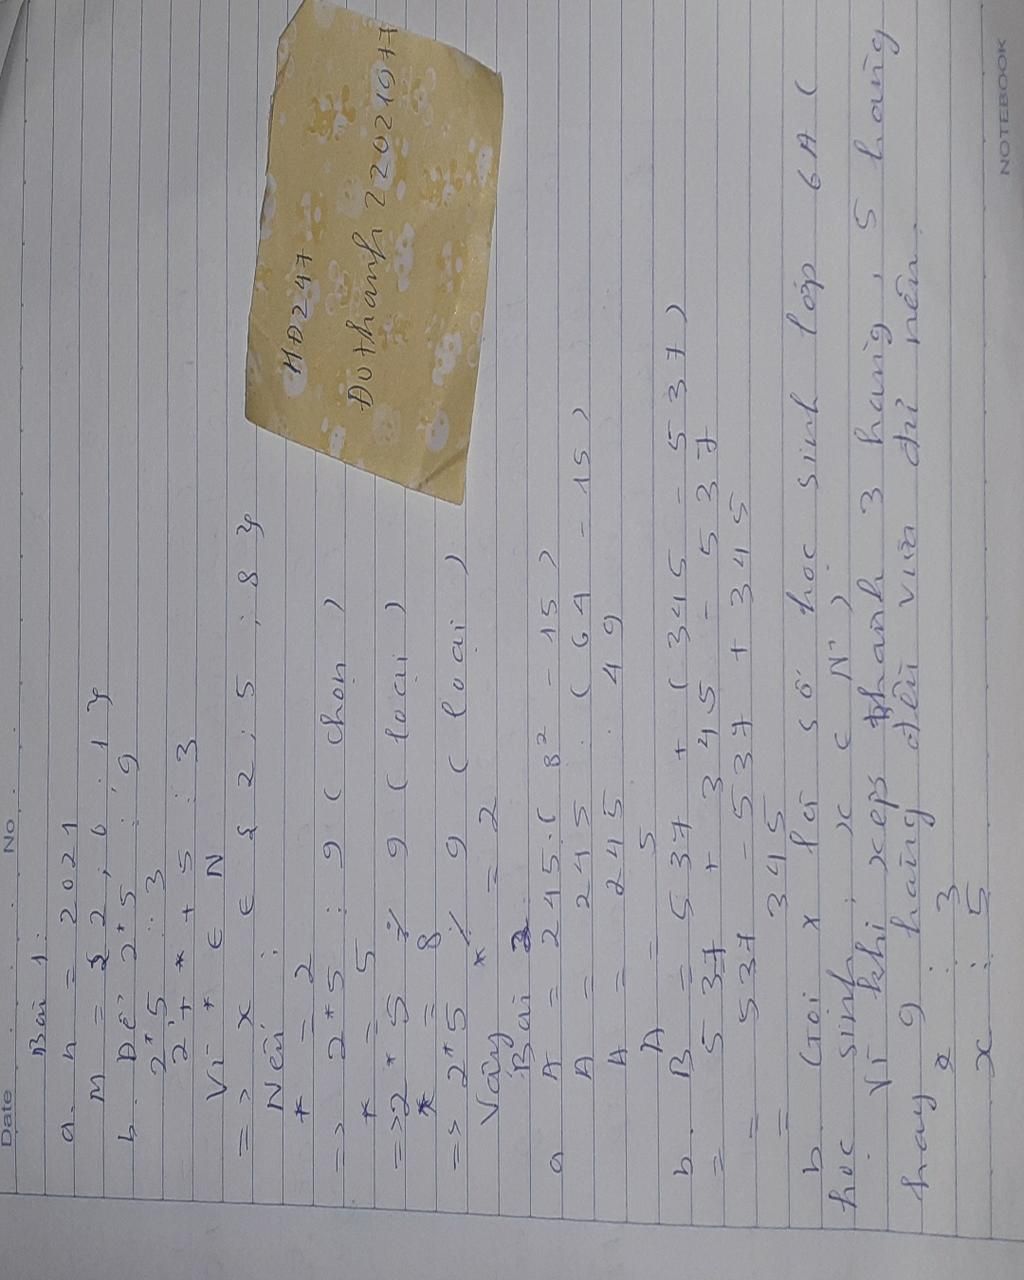 Date No
Bài 1:
a. n = 2021
M = { 2 ; 0 ; 1 }
b. Để 2*5 ⋮ 9
2*5 ⋮ 3
2 + * + 5 ⋮ 3
Vì * ∈ N
=> x ∈ { 2 ; 5 ; 8 }
Nếu :
* = 2
=> 2*5 ⋮ 9 ( chọn )
* = 5
=> 2*5 ⋮̸ 9 ( loại )
* = 8
=> 2*5 ⋮̸ 9 ( loại )
Vậy * = 2
Bài 2
a A = 245.( 8² - 15 )
A = 245 . ( 64 - 15 )
A = 245 . 49
A = 5
b. B = 537 + ( 345 - 537 )
= 537 + 345 - 537
= 537 - 537 + 345
= 345
b Gọi x là số học sinh lớp 6A (
học sinh, x ∈ N* )
Vì khi xếp thành 3 hàng, 5 hàng
hay 9 hàng đều vừa đủ nên.
x ⋮ 3
x ⋮ 5
HĐ247
Dothanh2202197
NOTEBOOK